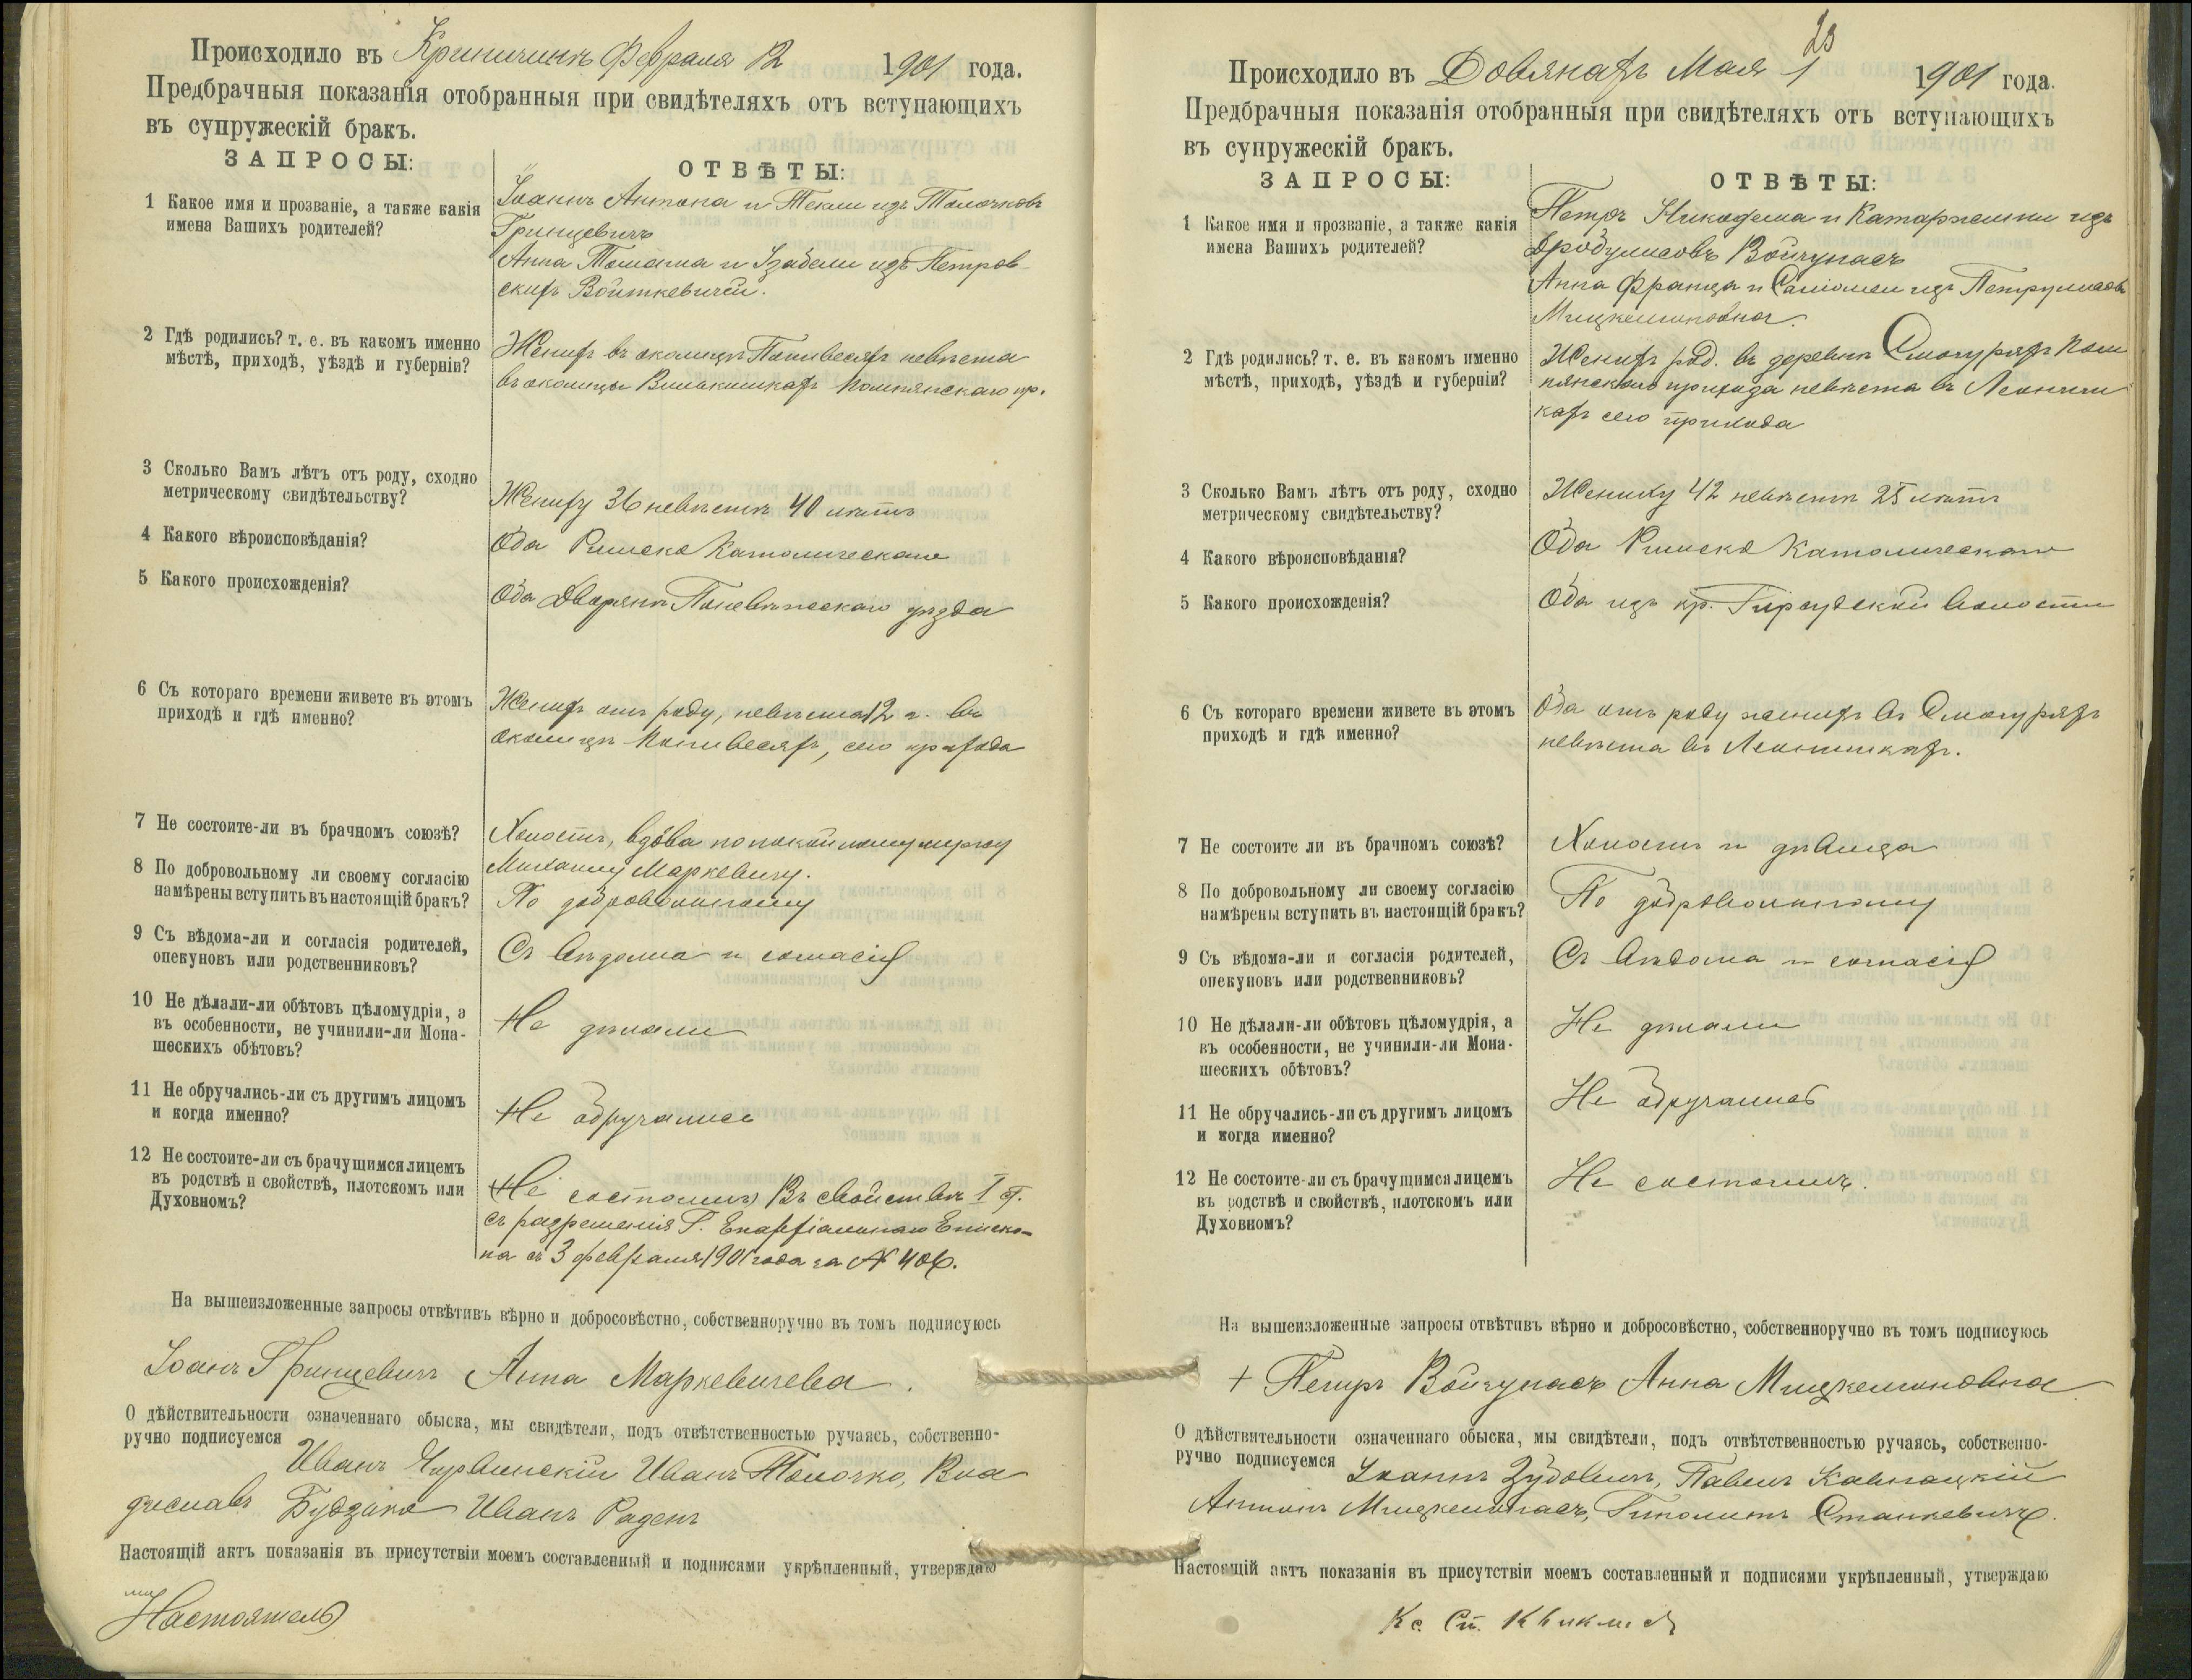 Происходило въ Криничинѣ Февраля 12 1901 года.
Предбрачныя показанія отобранныя при свидѣтеляхъ отъ вступающихъ
въ супружескій бракъ.
ЗАПРОСЫ:
ОТВѢТЫ:
1 Какое имя и прозваніе, а также какія
имена Вашихъ родителей?
Іоаннъ Антона и Текли изъ Толочковъ
Гринцевичъ
Анна Томаша и Изабели изъ Петров-
скихъ Войткевичей.
2 Гдѣ родились? т. е. въ какомъ именно
мѣстѣ, приходѣ, уѣздѣ и губерніи?
Женихъ въ околицѣ невѣста
въ околицы Вилькишкахъ пр.
3 Сколько Вамъ лѣтъ отъ роду, сходно
метрическому свидѣтельству?
Жениху 36 невѣстѣ 40 лѣтъ
4 Какого вѣроисповѣданія?
Оба Римско Католическаго
5 Какого происхожденія?
Оба Дворянъ Поневѣжскаго уѣзда
6 Съ котораго времени живете въ этомъ
приходѣ и гдѣ именно?
Женихъ отъ роду, невѣста 12 г. въ
околицѣ сего прихода
7 Не состоите-ли въ брачномъ союзѣ?
Холостъ, вдова по покойному мужу
Михаилу Маркевичу.
8 По добровольному ли своему согласію
намѣрены вступить въ настоящій бракъ?
По добровольному
9 Съ вѣдома-ли и согласія родителей,
опекуновъ или родственниковъ?
Съ вѣдома и согласія
10 Не дѣлали-ли обѣтовъ цѣломудрія, а
въ особенности, не учинили-ли Мона-
шескихъ обѣтовъ?
Не дѣлали
11 Не обручались-ли съ другимъ лицомъ
и когда именно?
Не обручались
12 Не состоите-ли съ брачущимся лицемъ
въ родствѣ и свойствѣ, плотскомъ или
Духовномъ?
Не состоимъ Въ свойствѣ I ст.
съ разрешенія Г. Епархіальнаго Еписко-
па съ 3 февраля 1901 года за № 406.
На вышеизложенные запросы отвѣтивъ вѣрно и добросовѣстно, собственноручно въ томъ подписуюсь
Іоанъ Гринцевичъ Анна Маркевичева.
О дѣйствительности означеннаго обыска, мы свидѣтели, подъ отвѣтственностью ручаясь, собственно-
ручно подписуемся
Иванъ Чирвинскій Иванъ Толочко, Вла
диславъ Будзяко Иванъ Раденъ
Настоящій актъ показанія въ присутствіи моемъ составленный и подписями укрѣпленный, утверждаю
Настоятель
23
Происходило въ Довянахъ Мая 1 1901 года.
Предбрачныя показанія отобранныя при свидѣтеляхъ отъ вступающихъ
въ супружескій бракъ.
ЗАПРОСЫ:
ОТВѢТЫ:
1 Какое имя и прозваніе, а также какія
имена Вашихъ родителей?
Петръ Никодема и Катаржины изъ
Дробулисовъ Войчунасъ
Анна Франца и Саломеи изъ Петрулисовъ
Мицкелюновна.
2 Гдѣ родились? т. е. въ какомъ именно
мѣстѣ, приходѣ, уѣздѣ и губерніи?
Женихъ род. въ деревнѣ Смогуряхъ Пом
пянскаго прихода невѣста въ Леониш
кахъ сего прихода
3 Сколько Вамъ лѣтъ отъ роду, сходно
метрическому свидѣтельству?
Жениху 42 невѣстѣ 25 лѣтъ
4 Какого вѣроисповѣданія?
Оба Римско Католическаго
5 Какого происхожденія?
Оба изъ кр. Гирсудской волости
6 Съ котораго времени живете въ этомъ
приходѣ и гдѣ именно?
Оба отъ роду женихъ въ Смогуряхъ
невѣста въ Леонишкахъ.
7 Не состоите ли въ брачномъ союзѣ?
Холостъ и дѣвица
8 По добровольному ли своему согласію
намѣрены вступить въ настоящій бракъ?
По добровольному
9 Съ вѣдома-ли и согласія родителей,
опекуновъ или родственниковъ?
Съ вѣдома и согласія
10 Не дѣлали-ли обѣтовъ цѣломудрія, а
въ особенности, не учинили-ли Мона-
шескихъ обѣтовъ?
Не дѣлали
11 Не обручались-ли съ другимъ лицомъ
и когда именно?
Не обручались
12 Не состоите-ли съ брачущимся лицемъ
въ родствѣ и свойствѣ, плотскомъ или
Духовномъ?
Не состоимъ.
На вышеизложенные запросы отвѣтивъ вѣрно и добросовѣстно, собственноручно въ томъ подписуюсь
+ Петръ Войчунасъ Анна Мицкелюновна
О дѣйствительности означеннаго обыска, мы свидѣтели, подъ отвѣтственностью ручаясь, собственно-
ручно подписуемся
Іоаннъ Зубовичъ, Павелъ
Антонъ Мицкелюнасъ, Гиполитъ Станкевичъ.
Настоящій актъ показанія въ присутствіи моемъ составленный и подписями укрѣпленный, утверждаю
Кс. Ст.